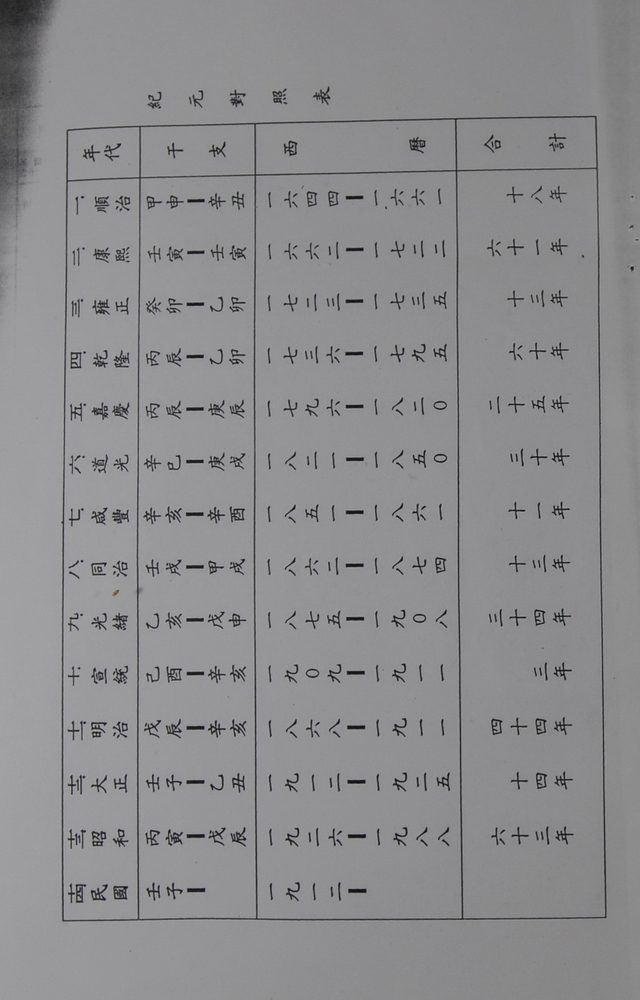 紀元對照表
年代 干支 西曆 合計
一.順治 甲申－辛丑 一六四四－一六六一 十八年
二.康熙 壬寅－壬寅 一六六二－一七二二 六十一年
三.雍正 癸卯－乙卯 一七二三－一七三五 十三年
四.乾隆 丙辰－乙卯 一七三六－一七九五 六十年
五.嘉慶 丙辰－庚辰 一七九六－一八二0 二十五年
六.道光 辛巳－庚戌 一八二一－一八五0 三十年
七.咸豐 辛亥－辛酉 一八五一－一八六一 十一年
八.同治 壬戌－甲戌 一八六二－一八七四 十三年
九.光緒 乙亥－戊申 一八七五－一九0八 三十四年
十.宣統 己酉－辛亥 一九0九－一九一一 三年
十一.明治 戊辰－辛亥 一八六八－一九一一 四十四年
十二.大正 壬子－乙丑 一九一二－一九二五 十四年
十三.昭和 丙寅－戊辰 一九二六－一九八八 六十三年
十四.民國 壬子－ 一九一二－